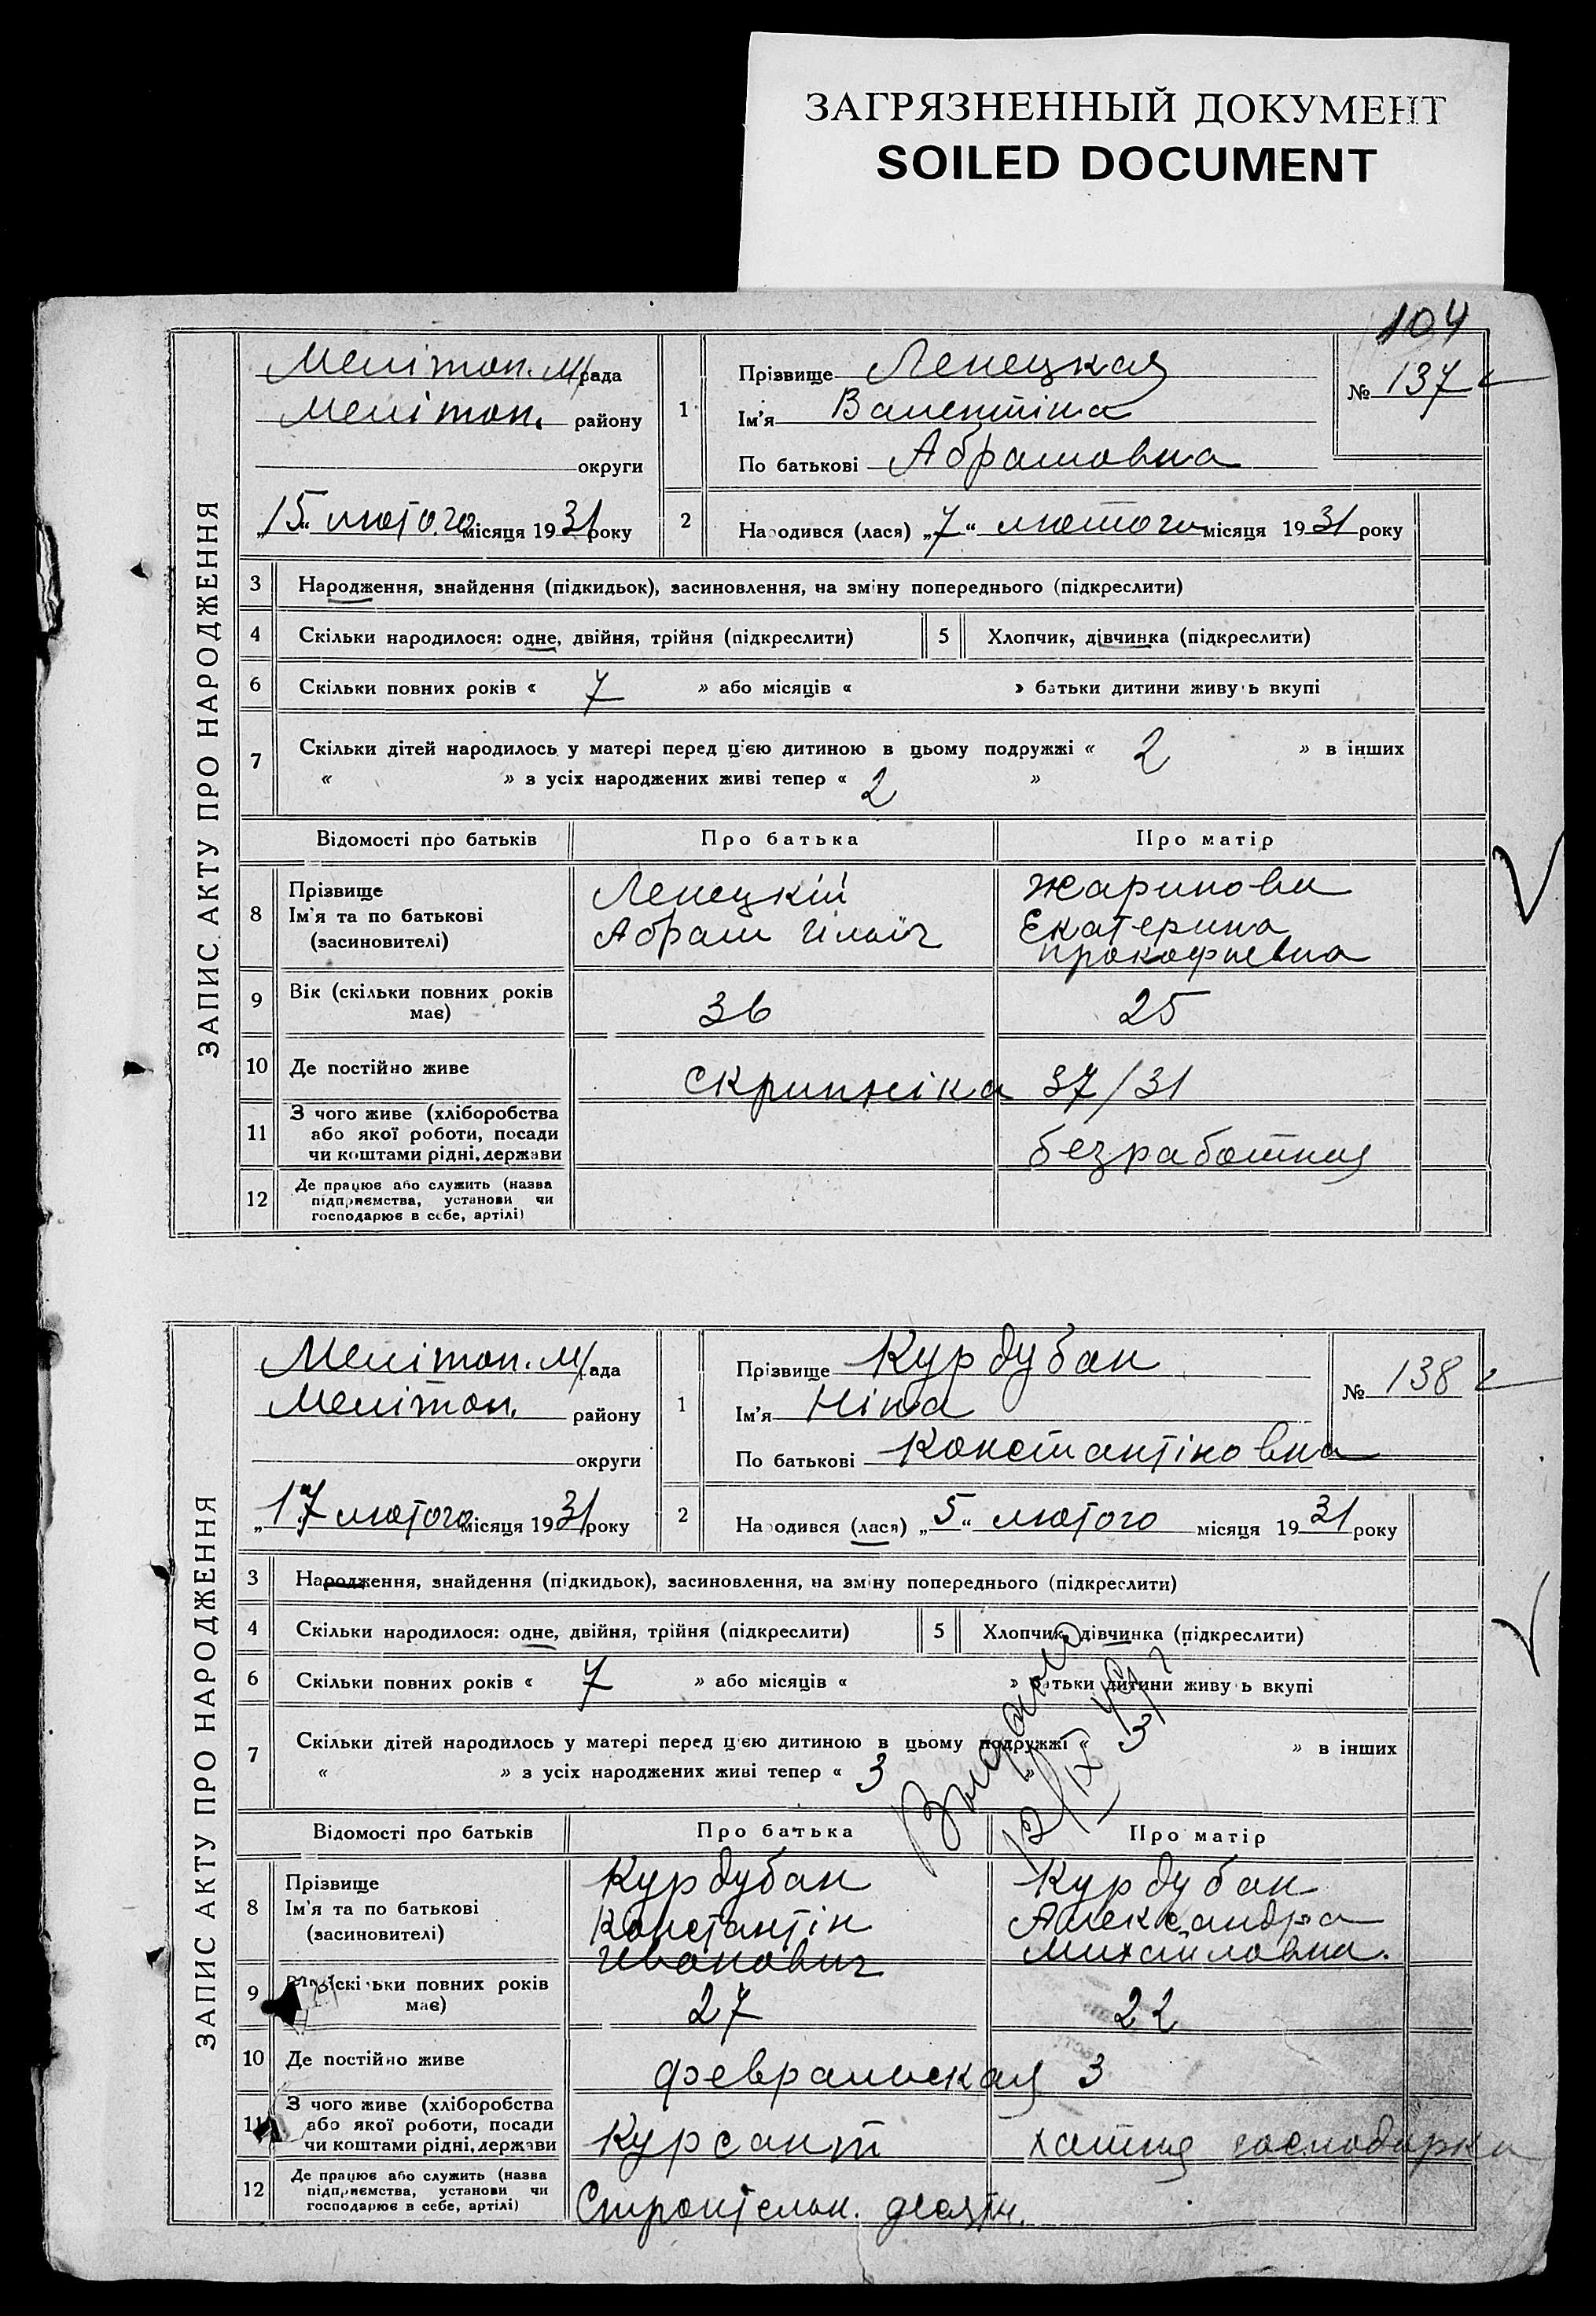 ЗАГРЯЗНЕННЫЙ ДОКУМЕНТ
SOILED DOCUMENT
104
ЗАПИС АКТУ ПРО НАРОДЖЕННЯ
Мелітоп. м/рада
Мелітоп. району
округи
„15“ лютого місяця 1931 року
1
Прізвище Ленецкая
Ім'я Валентіна
По батькові Абрамовна
№ 137
2
Народився (лася) „7“ лютого місяця 1931 року
3 Народження, знайдення (підкидьок), засиновлення, на зміну попереднього (підкреслити)
4 Скільки народилося: одне, двійня, трійня (підкреслити) 5 Хлопчик, дівчинка (підкреслити)
6 Скільки повних років « 7 » або місяців « » батьки дитини живуть вкупі
7 Скільки дітей народилось у матері перед цією дитиною в цьому подружжі « 2 » в інших
« » з усіх народжених живі тепер « 2 »
Відомості про батьків Про батька Про матір
8 Прізвище Ім'я та по батькові (засновителі)
Ленецкій
Абрам Ільіч
Жаринова
Екатерина
Прокофьевна
9 Вік (скільки повних років має) 36 25
10 Де постійно живе Скрипніка 37/31
11 З чого живе (хліборобства або якої роботи, посади чи коштами рідні, держави безработная
12 Де працює або служить (назва підприємства, установи чи господарює в себе, артілі)
ЗАПИС АКТУ ПРО НАРОДЖЕННЯ
Мелітоп. м/рада
Мелітоп. району
округи
„17“ лютого місяця 1931 року
1
Прізвище Курдубан
Ім'я Ніна
По батькові Константіновна
№ 138
2
Народився (лася) „5“ лютого місяця 1931 року
3 Народження, знайдення (підкидьок), засиновлення, на зміну попереднього (підкреслити)
4 Скільки народилося: одне, двійня, трійня (підкреслити) 5 Хлопчик, дівчинка (підкреслити)
6 Скільки повних років « 7 » або місяців « » батьки дитини живуть вкупі
7 Скільки дітей народилось у матері перед цією дитиною в цьому подружжі « 3 » в інших
« » з усіх народжених живі тепер « 3 »
Відомості про батьків Про батька Про матір
8 Прізвище Ім'я та по батькові (засиновителі)
Курдубан
Константін
Иванович
Курдубан
Александра
Михайловна.
9 Вік (скільки повних років має) 27 22
10 Де постійно живе Февральская 3
11 З чого живе (хліборобства або якої роботи, посади чи коштами рідні, держави Курсант хатня господарка
12 Де працює або служить (назва підприємства, установи чи господарює в себе, артілі) Строительн.